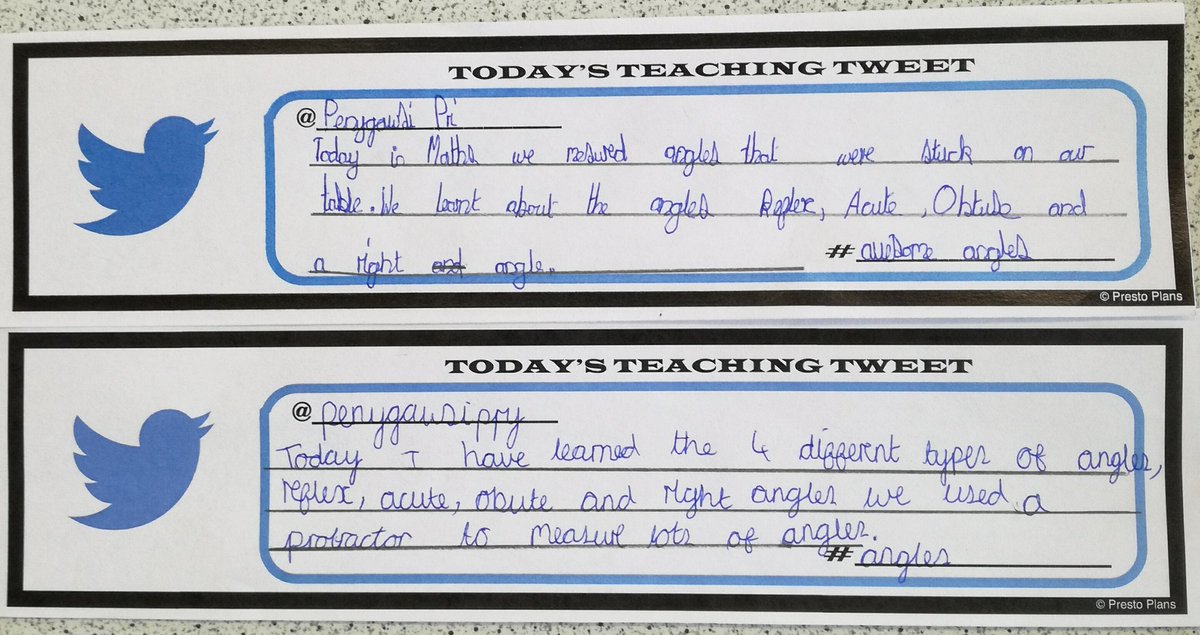 TODAY'S TEACHING TWEET
@Penygawsi Pri
Today in Maths we mesured angles that were stuck on our
table. We learnt about the angles Reflex, Acute, Obtuse and
a right and angle.
# awesome angles
© Presto Plans
TODAY'S TEACHING TWEET
@penygawsippy
Today I have learned the 4 different types of angles,
reflex, acute, obute and right angles we used a
protractor to measure lots of angles.
# angles
© Presto Plans